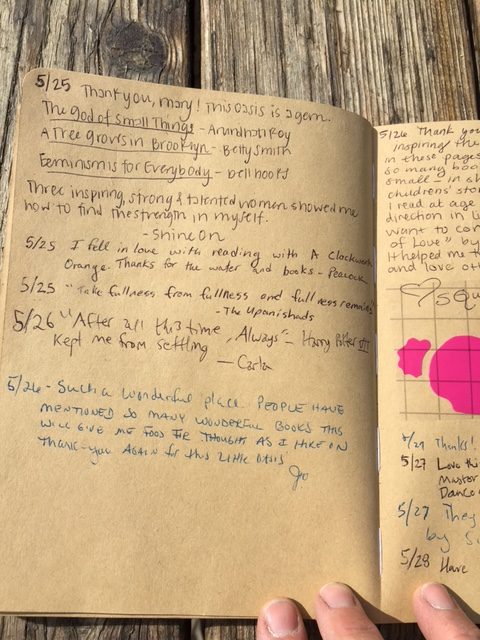 5/25 Thank you, mary! This oasis is a gem.
The god of Small Things - Arundhati Roy
A Tree grows in Brooklyn - Betty Smith
Feminism is for Everybody - bell hooks
Three inspiring, strong & talented women showed me
how to find the strength in myself.
- Shine On
5/25 I fell in love with reading with A Clockwork
Orange. Thanks for the water and books - Peacock
5/25 "Take fullness from fullness and fullness remains"
- The Upanishads
5/26 "After all this time, Always" - Harry Potter
Kept me from settling
- Carla
5/26 - Such a wonderful place. PEOPLE HAVE
MENTIONED SO MANY WONDERFUL BOOKS THIS
WILL GIVE ME FOOD FOR THOUGHT AS I HIKE ON
THANK-you AGAIN for this LITTLE OASIS
Jo
5/26 Thank you
inspiring the
in these pages
so many boo
small - in s
childrens' sto
I read at age
direction in l
want to con
of Love" by
It helped me t
and love ot
squ
5/27 Thanks!
5/27 Love thi
Master
Dance
5/27 They
by S
5/28 Have